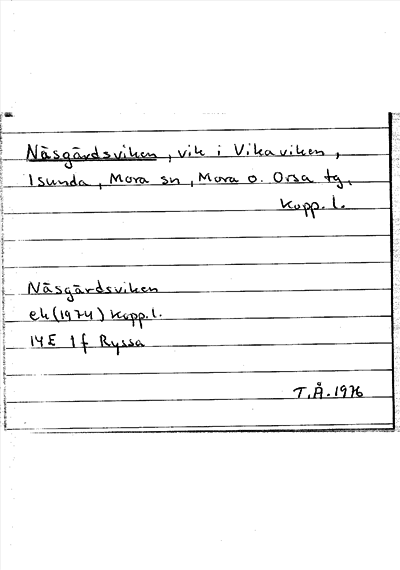 Näsgårdsviken, vik i Vikaviken,
Isunda, Mora sn, Mora o. Orsa tg,
Kopp. l.
Näsgårdsviken
ek (1974) Kopp. l.
14E 1f Ryssa
T.Å. 1976